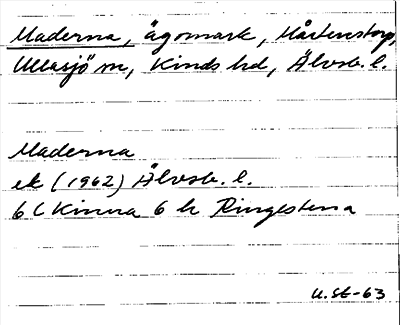 Maderna, ägomark, Mårtenstorp,
Ullasjö sn, Kinds hd, Älvsb. l.
Maderna
ek (1962) Älvsb. l.
6 C Kinna 6 h Ringestena
U.St-63